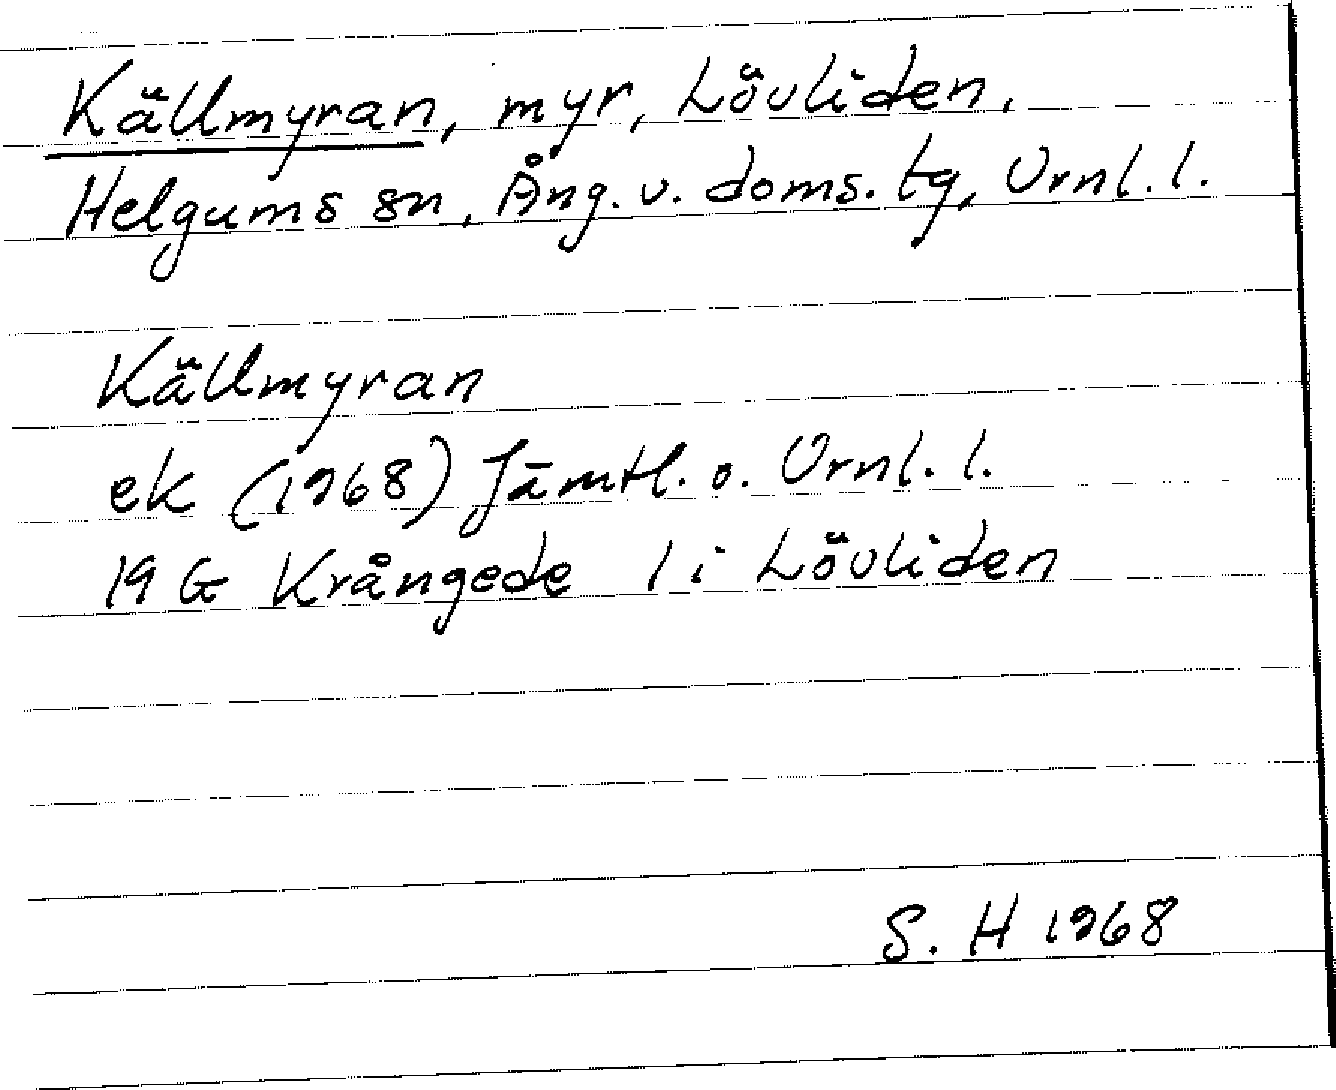 Källmyran, myr, Lövliden,
Helgums sn, Ång. v. doms. tg, Vrnl. l.
Källmyran
ek (1968) Jämtl. o. Vrnl. l.
19 G Krångede 1 i Lövliden
S. H 1968